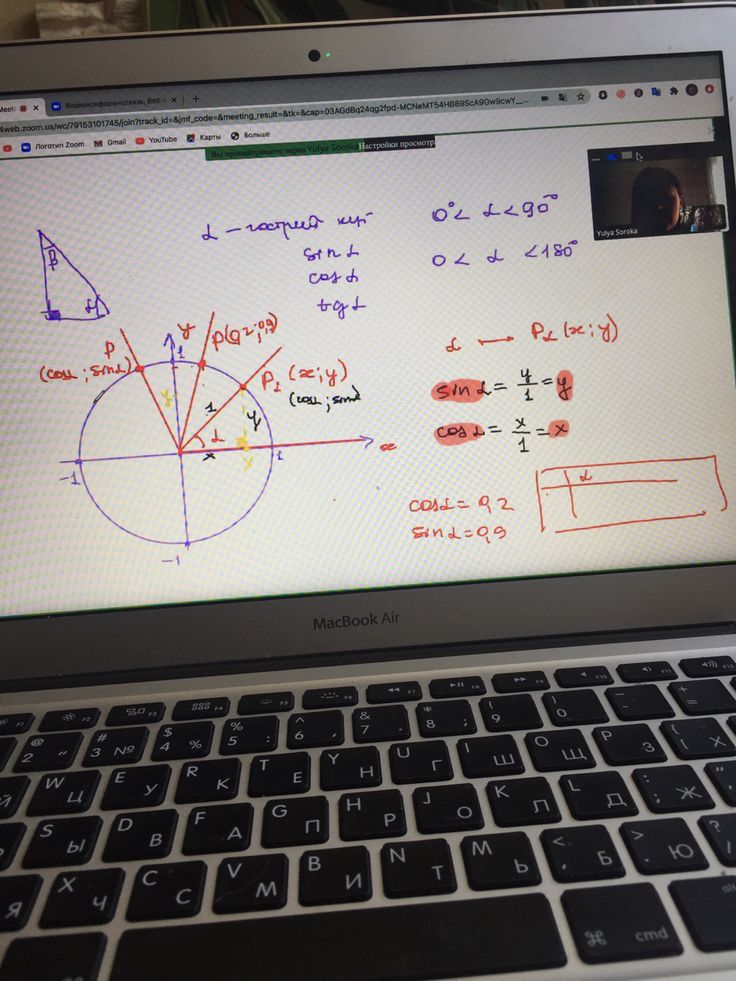 Видеоконференцсвязь, Веб-
4web.zoom.us/wc/79153101745/join?track_id=&jmf_code=&meeting_result=&tk=&cap=03AGdBq24qg2fpd-MCNeMT54HB89ScA9Gw9cwY_...
Логотип Zoom Gmail YouTube Карты Больше
Вы просматриваете экран Yulya Soroka Настройки просмотр
Yulya Soroka
α - гострий кут 0° < α < 90°
sin α
cos α 0 < α < 180°
tg α
β
α
P
(cos α ; sin α)
y
1
P(0,2; 0,9)
P₁ (x; y)
(cos α ; sin α)
y
1
α
y
x
x
x
-1
1
-1
α → Pα (x; y)
sin α = y/1 = y
cos α = x/1 = x
cos α = 0,2
sin α = 0,9
α
MacBook Air
F1 F2 F3 F4 F5 F6 F7 F8 F9 F10 F11 F12
@ 2 " # 3 № $ 4 % % 5 : ^ 6 , & 7 . * 8 ; ( 9 ) 0 _ - + =
Й W Ц E У R К T Е Y Н U Г I Ш O Щ P З { [ Х
S Ы D В F А G П H Р J О K Л L Д : ; Ж
Я X Ч C С V М B И N Т M Ь < , Б > . Ю ? /
⌘ cmd alt